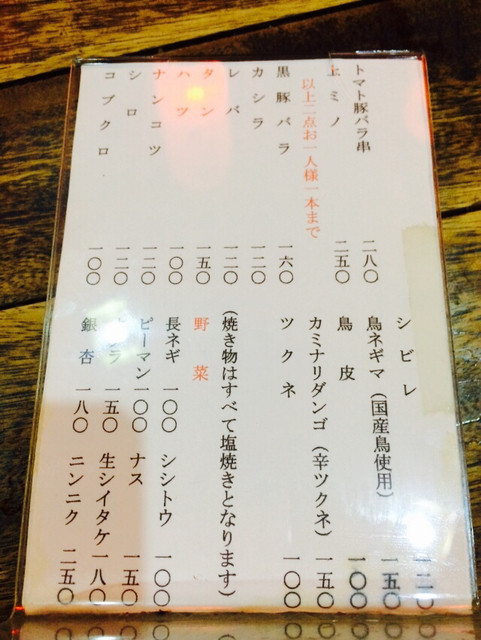 トマト豚バラ串 二八〇
上ミノ 二五〇
以上二点お一人様一本まで
黒豚バラ 一六〇
カシラ 一二〇
レバ 一二〇
タン 一五〇
ハツ 一〇〇
ナンコツ 一二〇
シロ 一二〇
コブクロ 一〇〇
シビレ 一二〇
鳥ネギマ(国産鳥使用) 一五〇
鳥皮 一〇〇
カミナリダンゴ(辛ツクネ) 一五〇
ツクネ 一〇〇
(焼き物はすべて塩焼きとなります)
野菜
長ネギ 一〇〇 シシトウ 一〇〇
ピーマン 一〇〇 ナス 一五〇
ラ 一五〇 生シイタケ 一八〇
銀杏 一八〇 ニンニク 二五〇